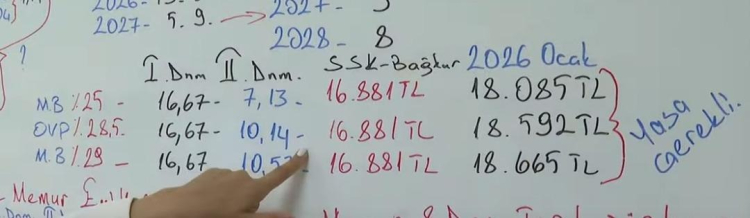 2027- 5. 9.
2028- 8
I. Dnm II. Dnm. SSK-Bağkur 2026 Ocak
MB %25 - 16,67- 7,13- 16.881 TL 18.085 TL
OVP %28,5. 16,67- 10,14- 16.881 TL 18.592 TL
M.B %29 - 16,67 16.881 TL 18.665 TL
Yasa Gerekli.
- Memur